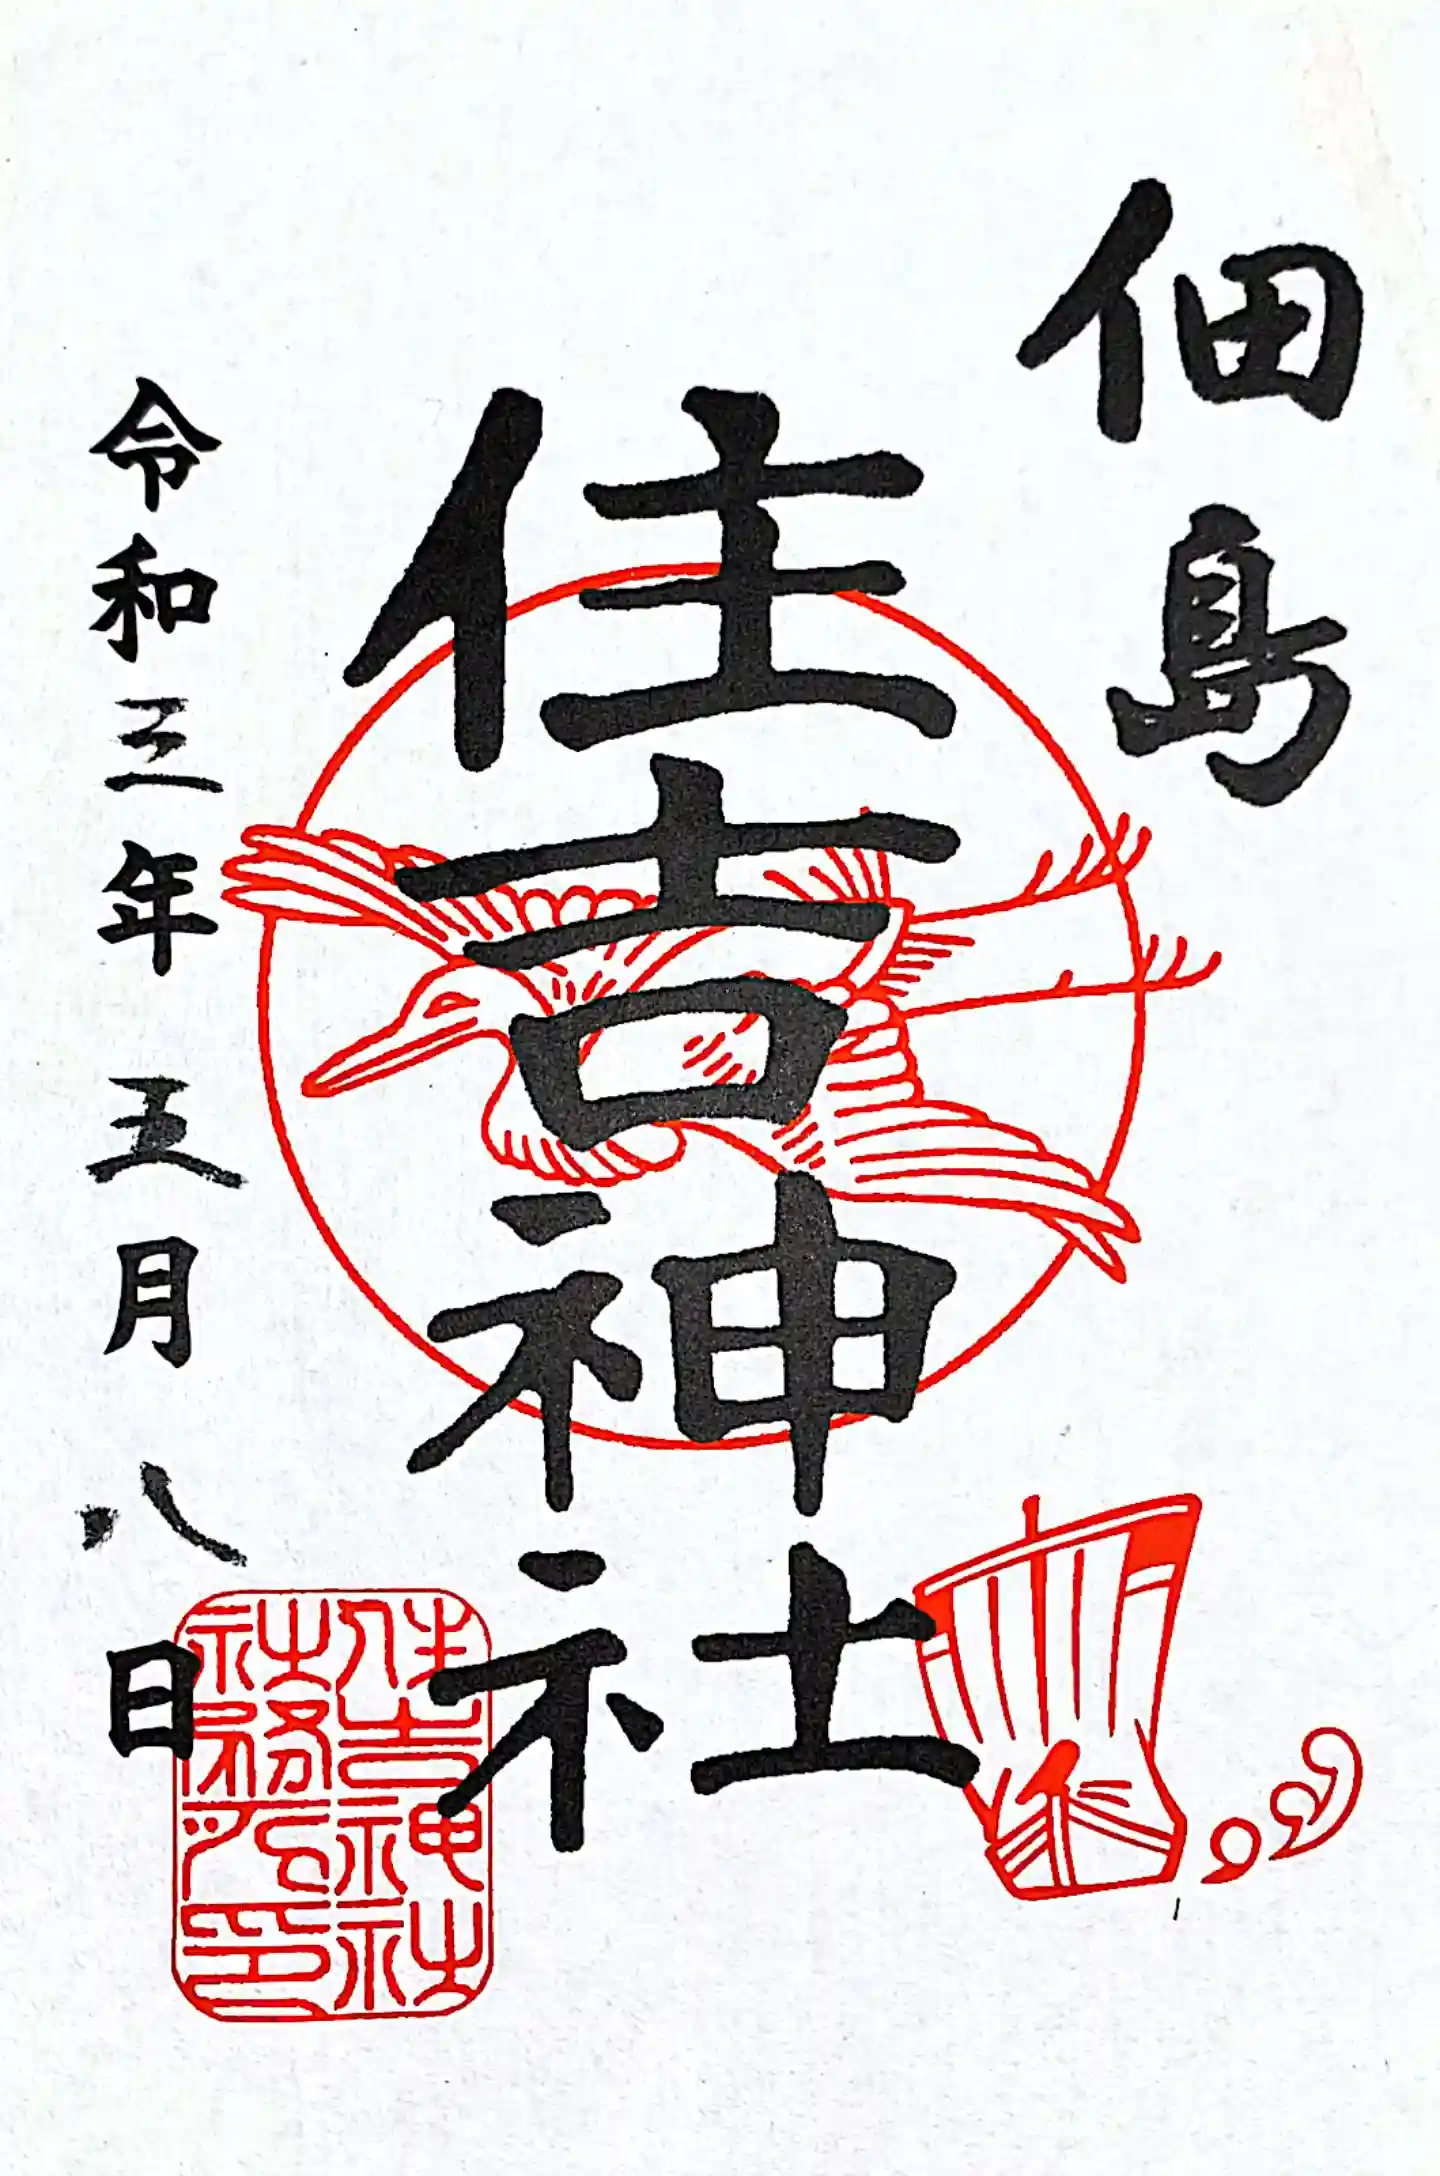 佃島
住吉神社
令和三年五月八日
住吉神社
社務所印